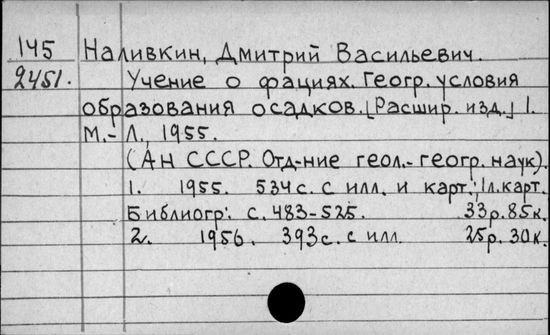 145 Наливкин, Дмитрий Васильевич.
2451. Учение о фациях. Геогр. условия
образования осадков. [Расшир. изд.] 1.
М.-Л., 1955.
(АН СССР. Отд-ние геол.-геогр. наук).
1. 1955. 534с. с илл. и карт.; 1л. карт.
Библиогр: с. 483-525. 33р. 85к.
2. 1956. 393с. с илл. 25р. 30к.